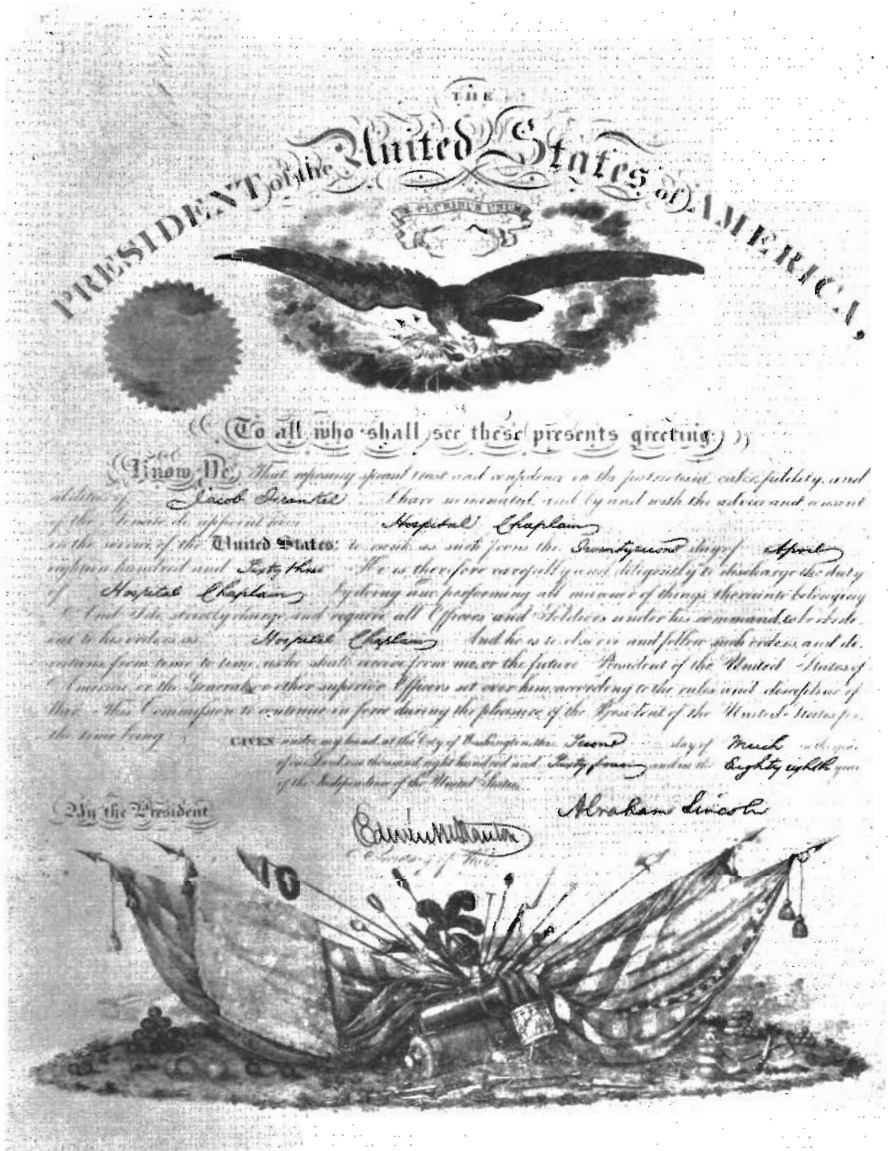 THE
PRESIDENT of the United States of AMERICA,
E PLURIBUS UNUM
To all who shall see these presents greeting:
Know Ye, That reposing special trust and confidence in the patriotism, valor, fidelity, and
abilities of Jacob Frankel I have nominated, and by and with the advice and consent
of the Senate do appoint him Hospital Chaplain
in the service of the United States: to rank as such from the Twenty second day of April
eighteen hundred and Sixty three He is therefore carefully and diligently to discharge the duty
of Hospital Chaplain by doing and performing all manner of things thereunto belonging
And I do strictly charge, and require all Officers and Soldiers under his command, to be obedi-
ent to his orders as Hospital Chaplain And he is to observe and follow such orders, and di-
rections, from time to time, as he shall receive from me, or the future President of the United States of
America, or the General, or other superior Officers set over him, according to the rules and discipline of
War. This Commission to continue in force during the pleasure of the President of the United States for
the time being
GIVEN under my hand, at the City of Washington this Second day of March in the year
of our Lord one thousand eight hundred and Sixty four and in the Eighty eighth year
of the Independence of the United States
Abraham Lincoln
By the President
Edwin M Stanton
Secretary of War